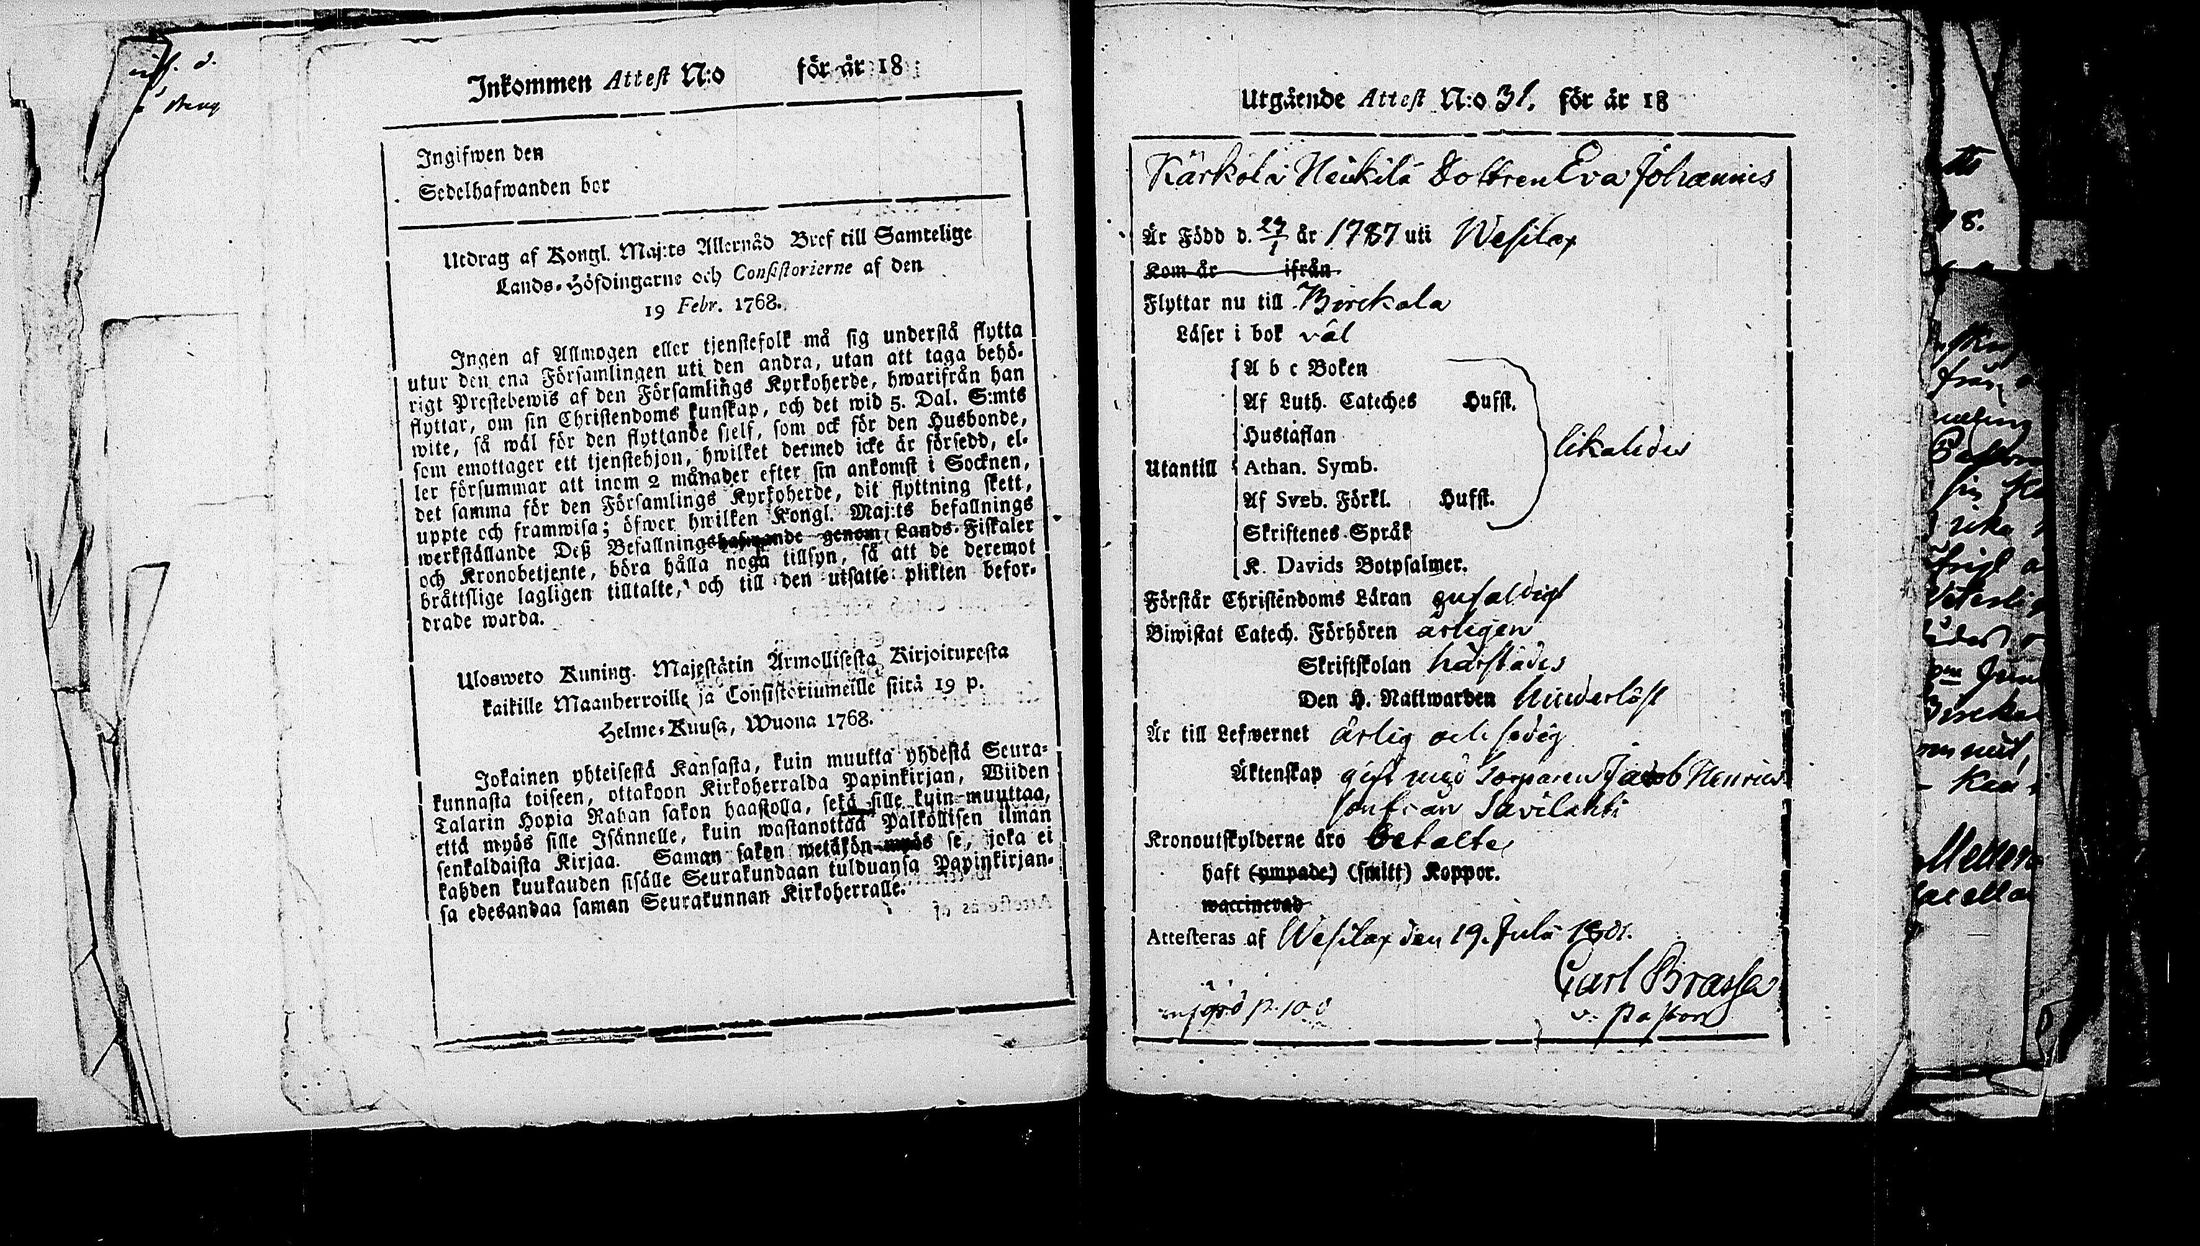 Inkommen Attest N:o för år 18
Ingifwen den
Sedelhafwanden bor
Utdrag af Kongl. Maj:ts Allernåd Bref till Samtelige
Lands-Höfdingarne och Consistorierne af den
19 Febr. 1768.
Ingen af Allmogen eller tjenstefolk må sig understå flytta
utur den ena Församlingen uti den andra, utan att taga behö-
rigt Prestebewis af den Församlings Kyrkoherde, hwarifrån han
flyttar, om sin Christendoms kunskap, och det wid 5. Dal. S:mts
wite, så wäl för den flyttande sjelf, som ock för den Husbonde,
som emottager ett tjenstehjon, hwilket dermed icke är försedd, el-
ler försummar att inom 2 månader efter sin ankomst i Socknen,
det samma för den Församlings Kyrkoherde, dit flyttning skett,
uppte och framwisa; öfwer hwilken Kongl. Maj:ts befallnings
werkställande Deß Befallningshafwande genom Lands-Fiskaler
och Kronobetjente, böra hålla noga tillsyn, så att de deremot
bråttslige lagligen tilltalte, och till den utsatte plikten befor-
drade warda.
Ulosweto Kuning. Majestätin Armollisesta Kirjoituxesta
kaikille Maanherroille ja Consistoriumeille siitä 19 p.
Helme-Kuusa, Wuona 1768.
Jokainen yhteisestä Kansasta, kuin muutta yhdestä Seura-
kunnasta toiseen, ottakoon Kirkoherralda Papinkirjan, Wiiden
Talarin Hopia Rahan sakon haastolla, sekä sille kuin muuttaa,
että myös sille Isännelle, kuin wastanottaa Palkollisen ilman
senkaldaista Kirjaa. Saman sakon wetäkön myös se, joka ei
kahden kuukauden sisälle Seurakundaan tulduansa Papinkirjan-
sa edesandaa saman Seurakunnan Kirkoherralle.
Utgående Attest N:o 31. för år 18
Kärkola Heikilä Dottren Eva Johannis
Är Född d. 27/1 år 1787 uti Wesilax
Kom år ifrån
Flyttar nu till Birckala
Läser i bok väl
A b c Boken
Af Luth. Cateches Hufst.
Hustaflan
Utantill Athan. Symb. likaledes
Af Sveb. Förkl. Hufst.
Skriftenes Språk
K. Davids Botpsalmer.
Förstår Christendoms Läran enfaldigt
Biwistat Catech. Förhören årligen
Skriftskolan härstädes
Den H. Nattwarden
Är till Lefwernet ärlig och sedig
Äktenskap gift med Torparen Jacob Henrics
son från Savilahti
Kronoutskylderne äro betalte
haft (ympade) (smitt) Koppor.
waccinerad
Attesteras af Wesilax den 19. Julii 1801.
Carl Brassa
v. Pastor